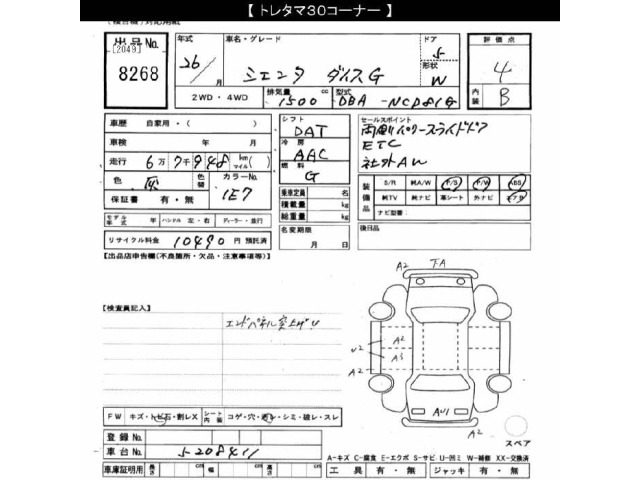 【 トレタマ30コーナー 】
出品No.
[2049]
8268
年式
26/
月
車名・グレード
シエンタ ダイスG
ドア
5
形状
W
評価点
4
内装
B
2WD・4WD
排気量
1500
cc
型式
DBA-NCP81G
車歴 自家用・( )
車検 年 月
走行 6万7千948 km マイル( )
色 灰
色替
カラーNo.
1E7
保証書 有・無
モデル年式 年 ハンドル 左・右 ディーラー・並行
リサイクル料金 10490 円 預託済
シフト
DAT
冷房
AAC
燃料
G
乗車定員 名
積載量 kg
総重量 kg
名変期限
月 日
セールスポイント
両側パワースライドドア
ETC
社外AW
装備品
S/R 純A/W P/S P/W ABS
純TV 純ナビ 革シート 外ナビ エアB
ナビ型番:
後日品
【出品店申告欄(不良箇所・欠品・注意事項等)】
【検査員記入】
エンドパネル突上げU
A2
FA
U2
A2
A3
A2
AU1
A2
スペア
FW キズ・トビ石・割レX
シート内装
コゲ・穴・汚レ・シミ・破レ・スレ
登録No.
車台No.
5208411
車庫証明用 長さ cm 幅 cm 高さ cm
A-キズ C-腐食 E-エクボ S-サビ U-凹ミ W-補修 XX-交換済
工具 有・無 ジャッキ 有・無